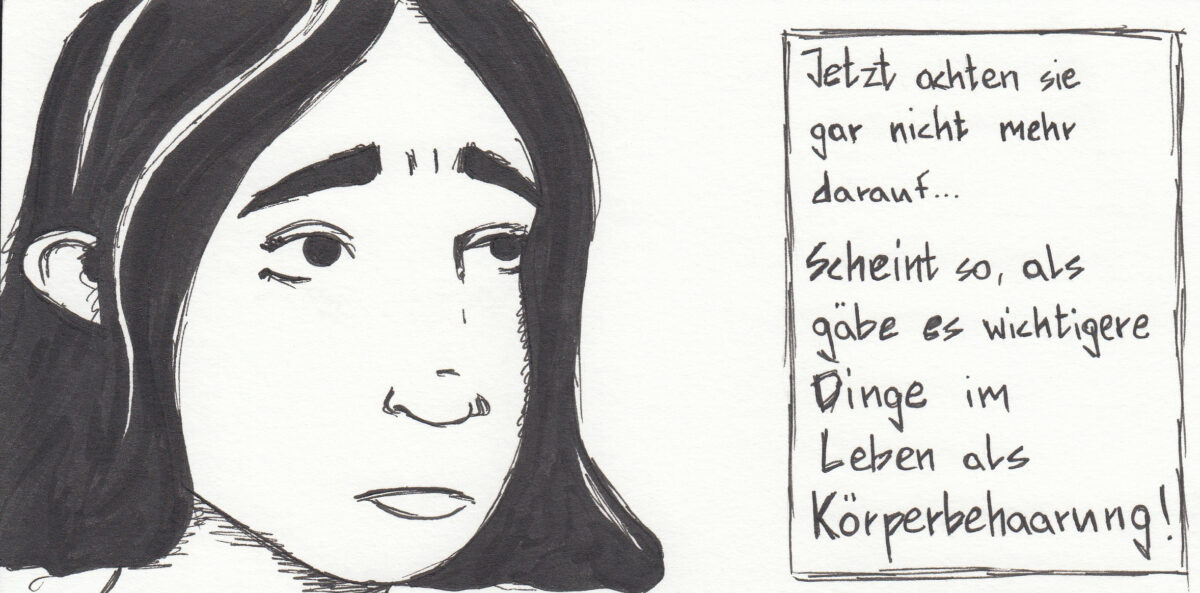 Jetzt achten sie
gar nicht mehr
darauf...
Scheint so, als
gäbe es wichtigere
Dinge im
Leben als
Körperbehaarung!